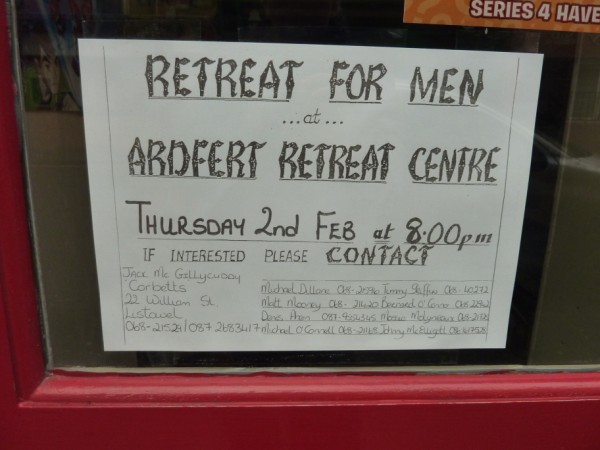 SERIES 4 HAVE
RETREAT FOR MEN
...at...
ARDFERT RETREAT CENTRE
THURSDAY 2nd FEB at 8.00pm
IF INTERESTED PLEASE CONTACT
Jack Mc Gillycuddy
Corbetts
22 William St.
Listowel
068-21529/087 2683417
Michael Dillane 068- Tommy 068-40272
Matt Mooney 068- Bernard O'Connor 068
Denis 087- Molyneaux 068-
Michael O'Connell 068-21168 Johnny